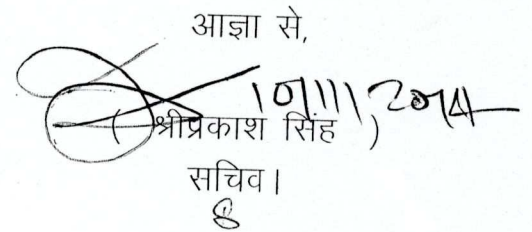 आज्ञा से,
10/11/2014
( श्रीप्रकाश सिंह )
सचिव।
8